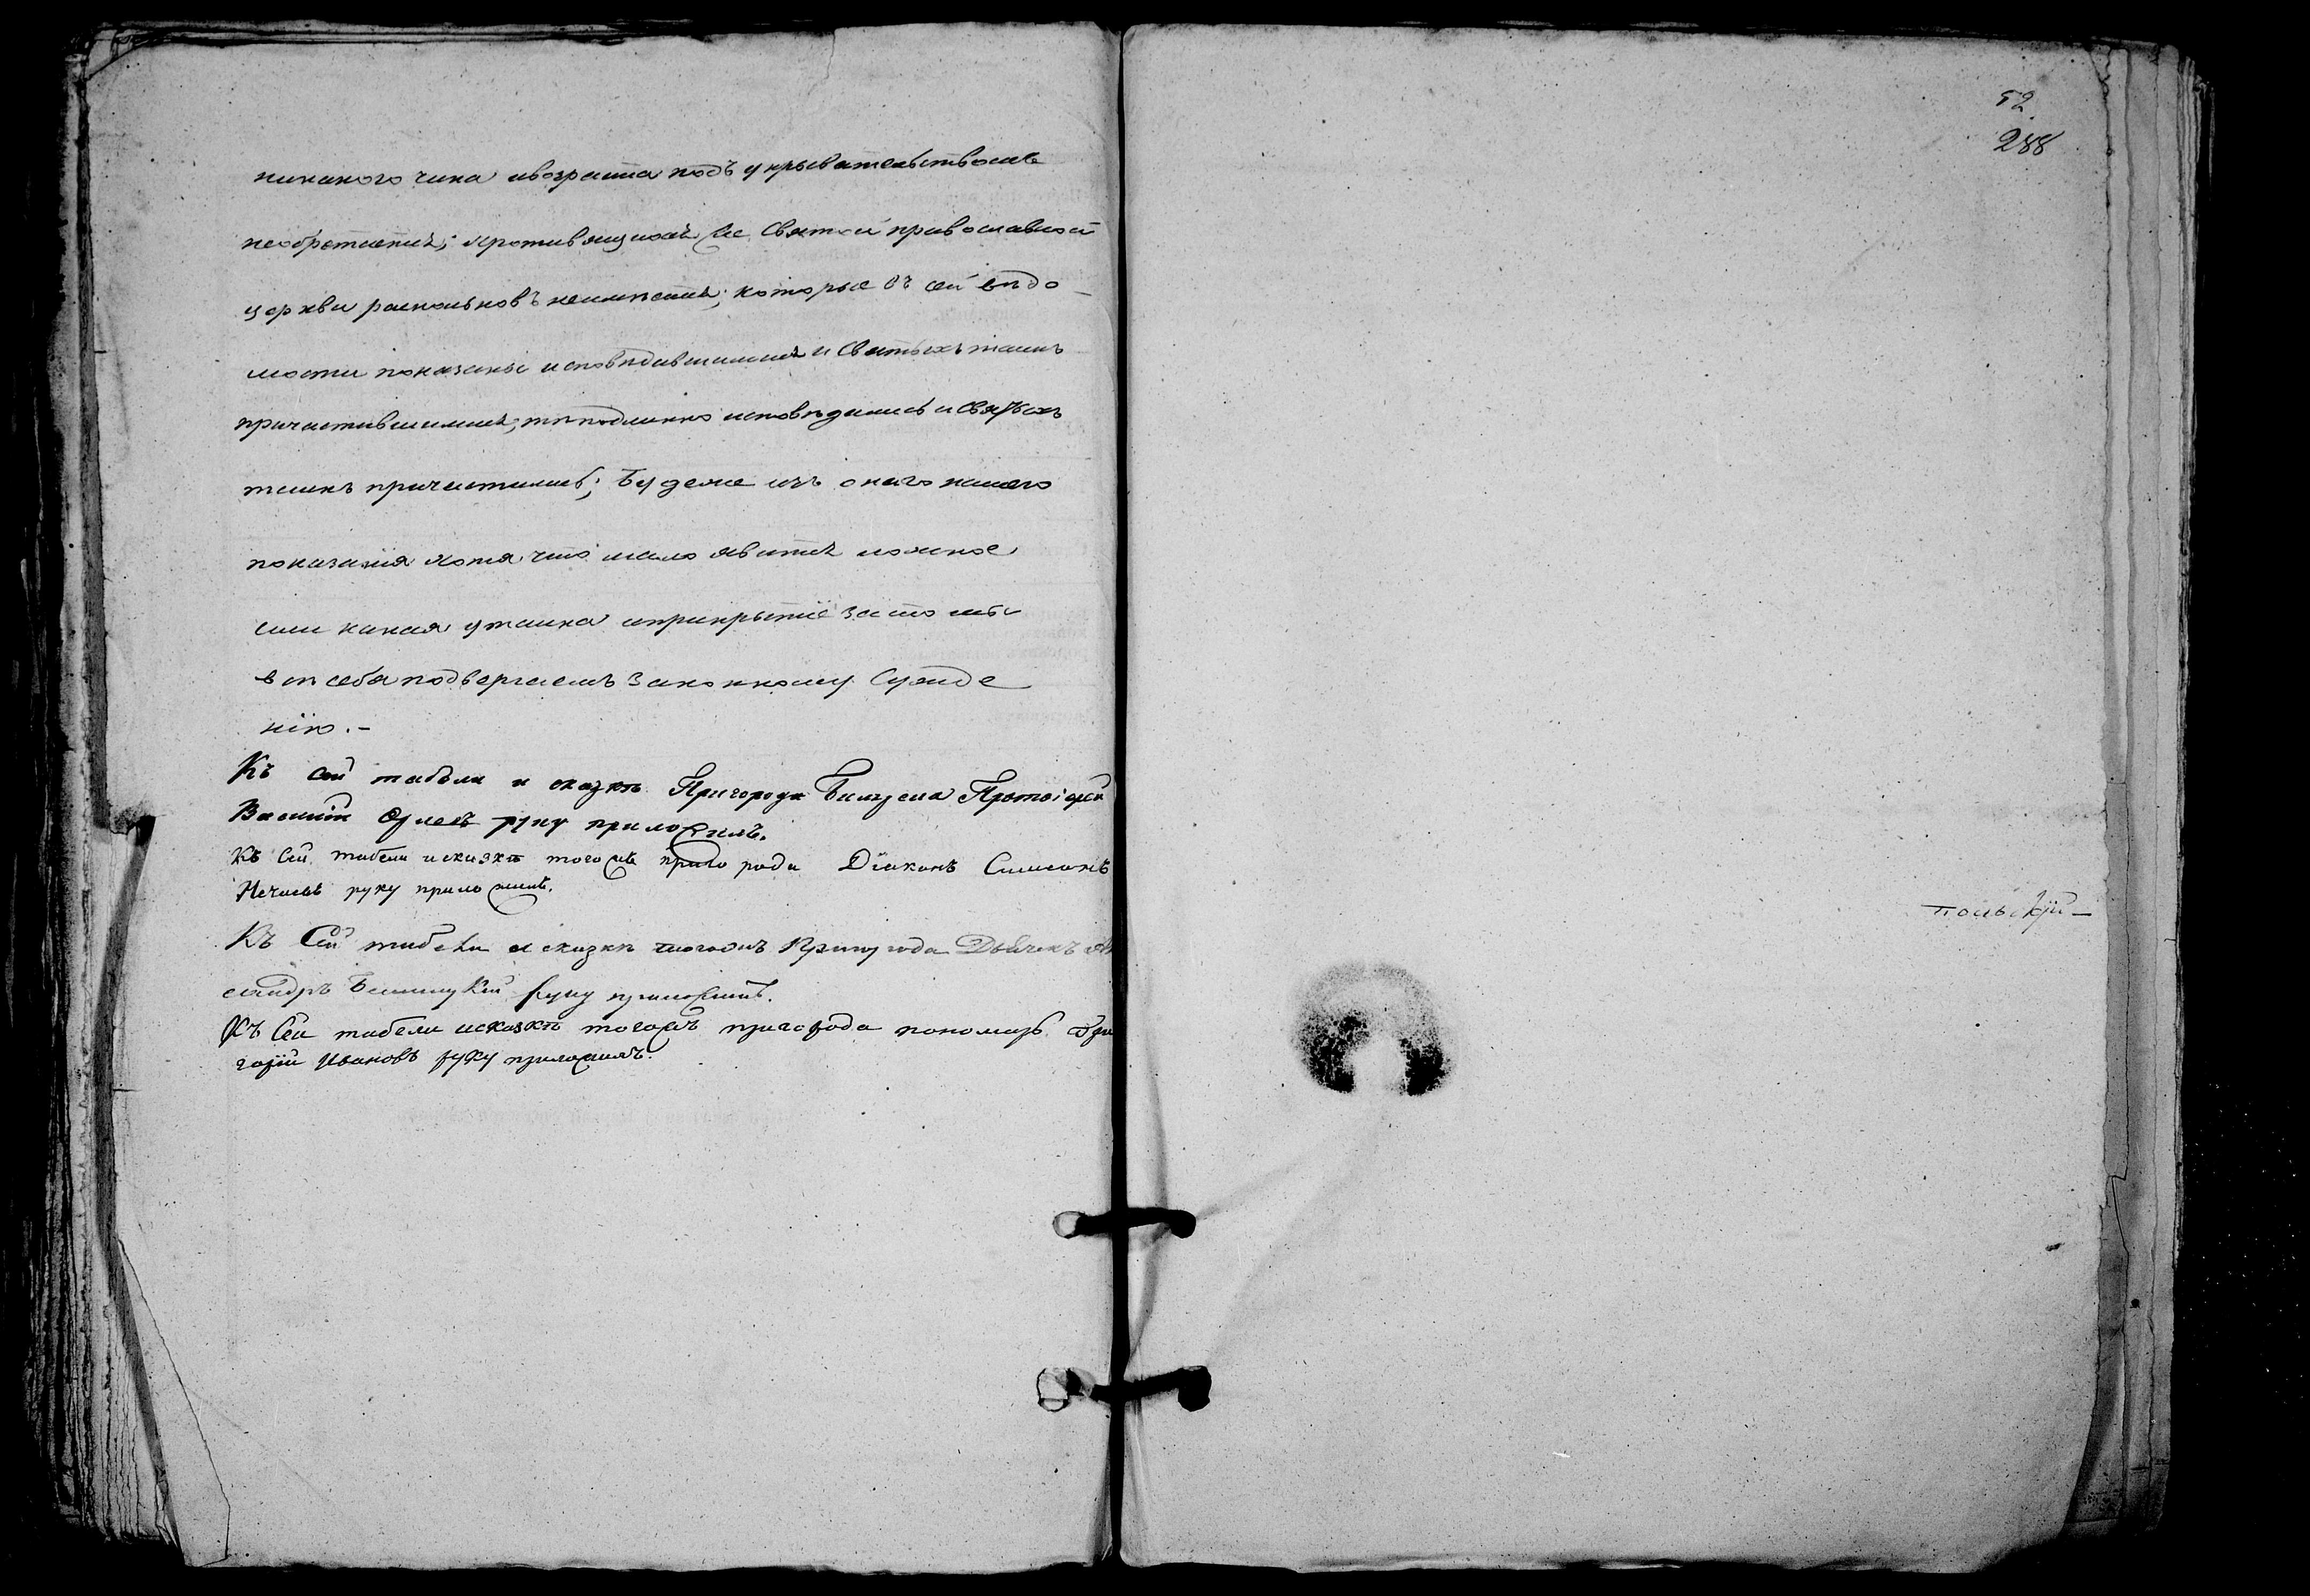 никакого чина ивозраста подъ укрывательствомъ
необретается; противящихся же Святой православной
церкви раскольновъ неимѣется; которые въ сей вѣдо-
мости показаны исповѣдавшимися и Святыхъ таинъ
причастившимися; тѣ подлинно исповѣдались и Святыхъ
таинъ причастились; Будеже изъ онаго нашего
показанія хотя что мало явится ложное
или какая утаика иприкрытіе зато мы
всѣ себя подвергаемъ законному Сужде
нію.-
Къ сей табѣли и сказкѣ Пригорода Билярска Протоіерей
Василій руку приложилъ.
Къ Сей табели исказкѣ тогожъ пригорода Діаконъ Симеонъ
Нечаевъ руку приложилъ.
Къ Сей табели исказкѣ тогожъ Пригорода Дьячекъ
сандръ руку приложилъ.
Къ Сей табели исказкѣ тогожъ пригорода пономарь Гри
горій Ивановъ руку приложилъ.
52
288